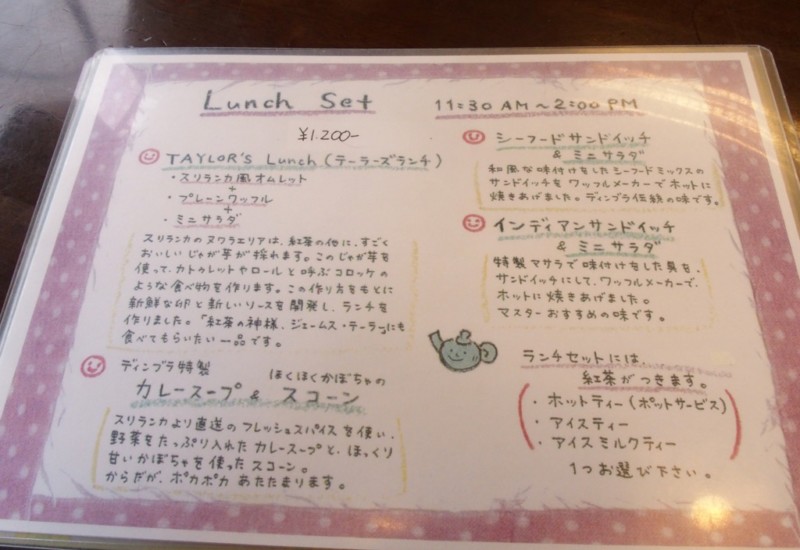 Lunch Set
11:30 AM~2:00 PM
¥1.200-
TAYLOR'S Lunch (テーラーズランチ)
・スリランカ風オムレット
+
・プレーンワッフル
+
・ミニサラダ
スリランカのヌワラエリアは、紅茶の他に、すごく
おいしいじゃが芋が採れます。このじゃが芋を
使って、カトゥレットやロールと呼ぶコロッケの
ような食べ物を作ります。この作り方をもとに
新鮮な卵と新しいソースを開発し、ランチを
作りました。「紅茶の神様、ジェームス・テーラー」にも
食べてもらいたい一品です。
ディンブラ特製
ほくほくかぼちゃの
カレースープ & スコーン
スリランカより直送のフレッシュスパイスを使い、
野菜をたっぷり入れたカレースープと、ほっくり
甘いかぼちゃを使ったスコーン。
からだが、ポカポカあたたまります。
シーフードサンドイッチ
& ミニサラダ
和風な味付けをしたシーフードミックスの
サンドイッチをワッフルメーカーでホットに
焼きあげました。ディンブラ伝統の味です。
インディアンサンドイッチ
& ミニサラダ
特製マサラで味付けをした具を、
サンドイッチにして、ワッフルメーカーで、
ホットに焼きあげました。
マスターおすすめの味です。
ランチセットには、
紅茶がつきます。
・ホットティー(ポットサービス)
・アイスティー
・アイスミルクティー
1つお選び下さい。